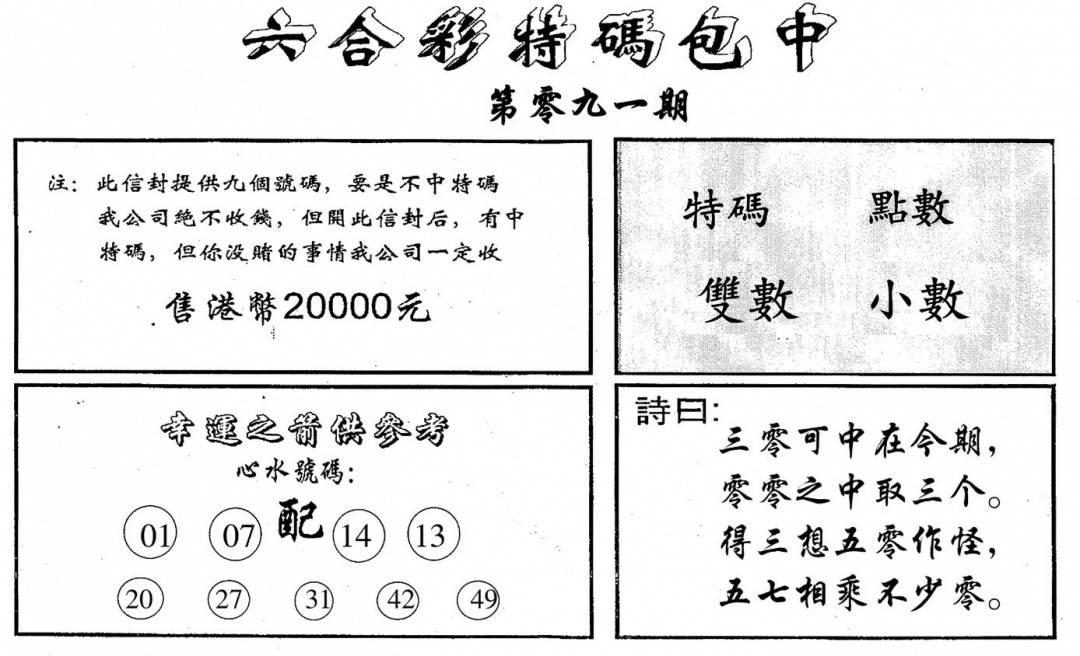 六合彩特碼包中
第零九一期
注: 此信封提供九個號碼, 要是不中特碼
我公司絕不收錢, 但開此信封后, 有中
特碼, 但你没賭的事情我公司一定收
售港幣20000元
特碼 點數
雙數 小數
幸運之箭供參考
心水號碼:
01 07 配 14 13
20 27 31 42 49
詩曰:
三零可中在今期,
零零之中取三个。
得三想五零作怪,
五七相乘不少零。